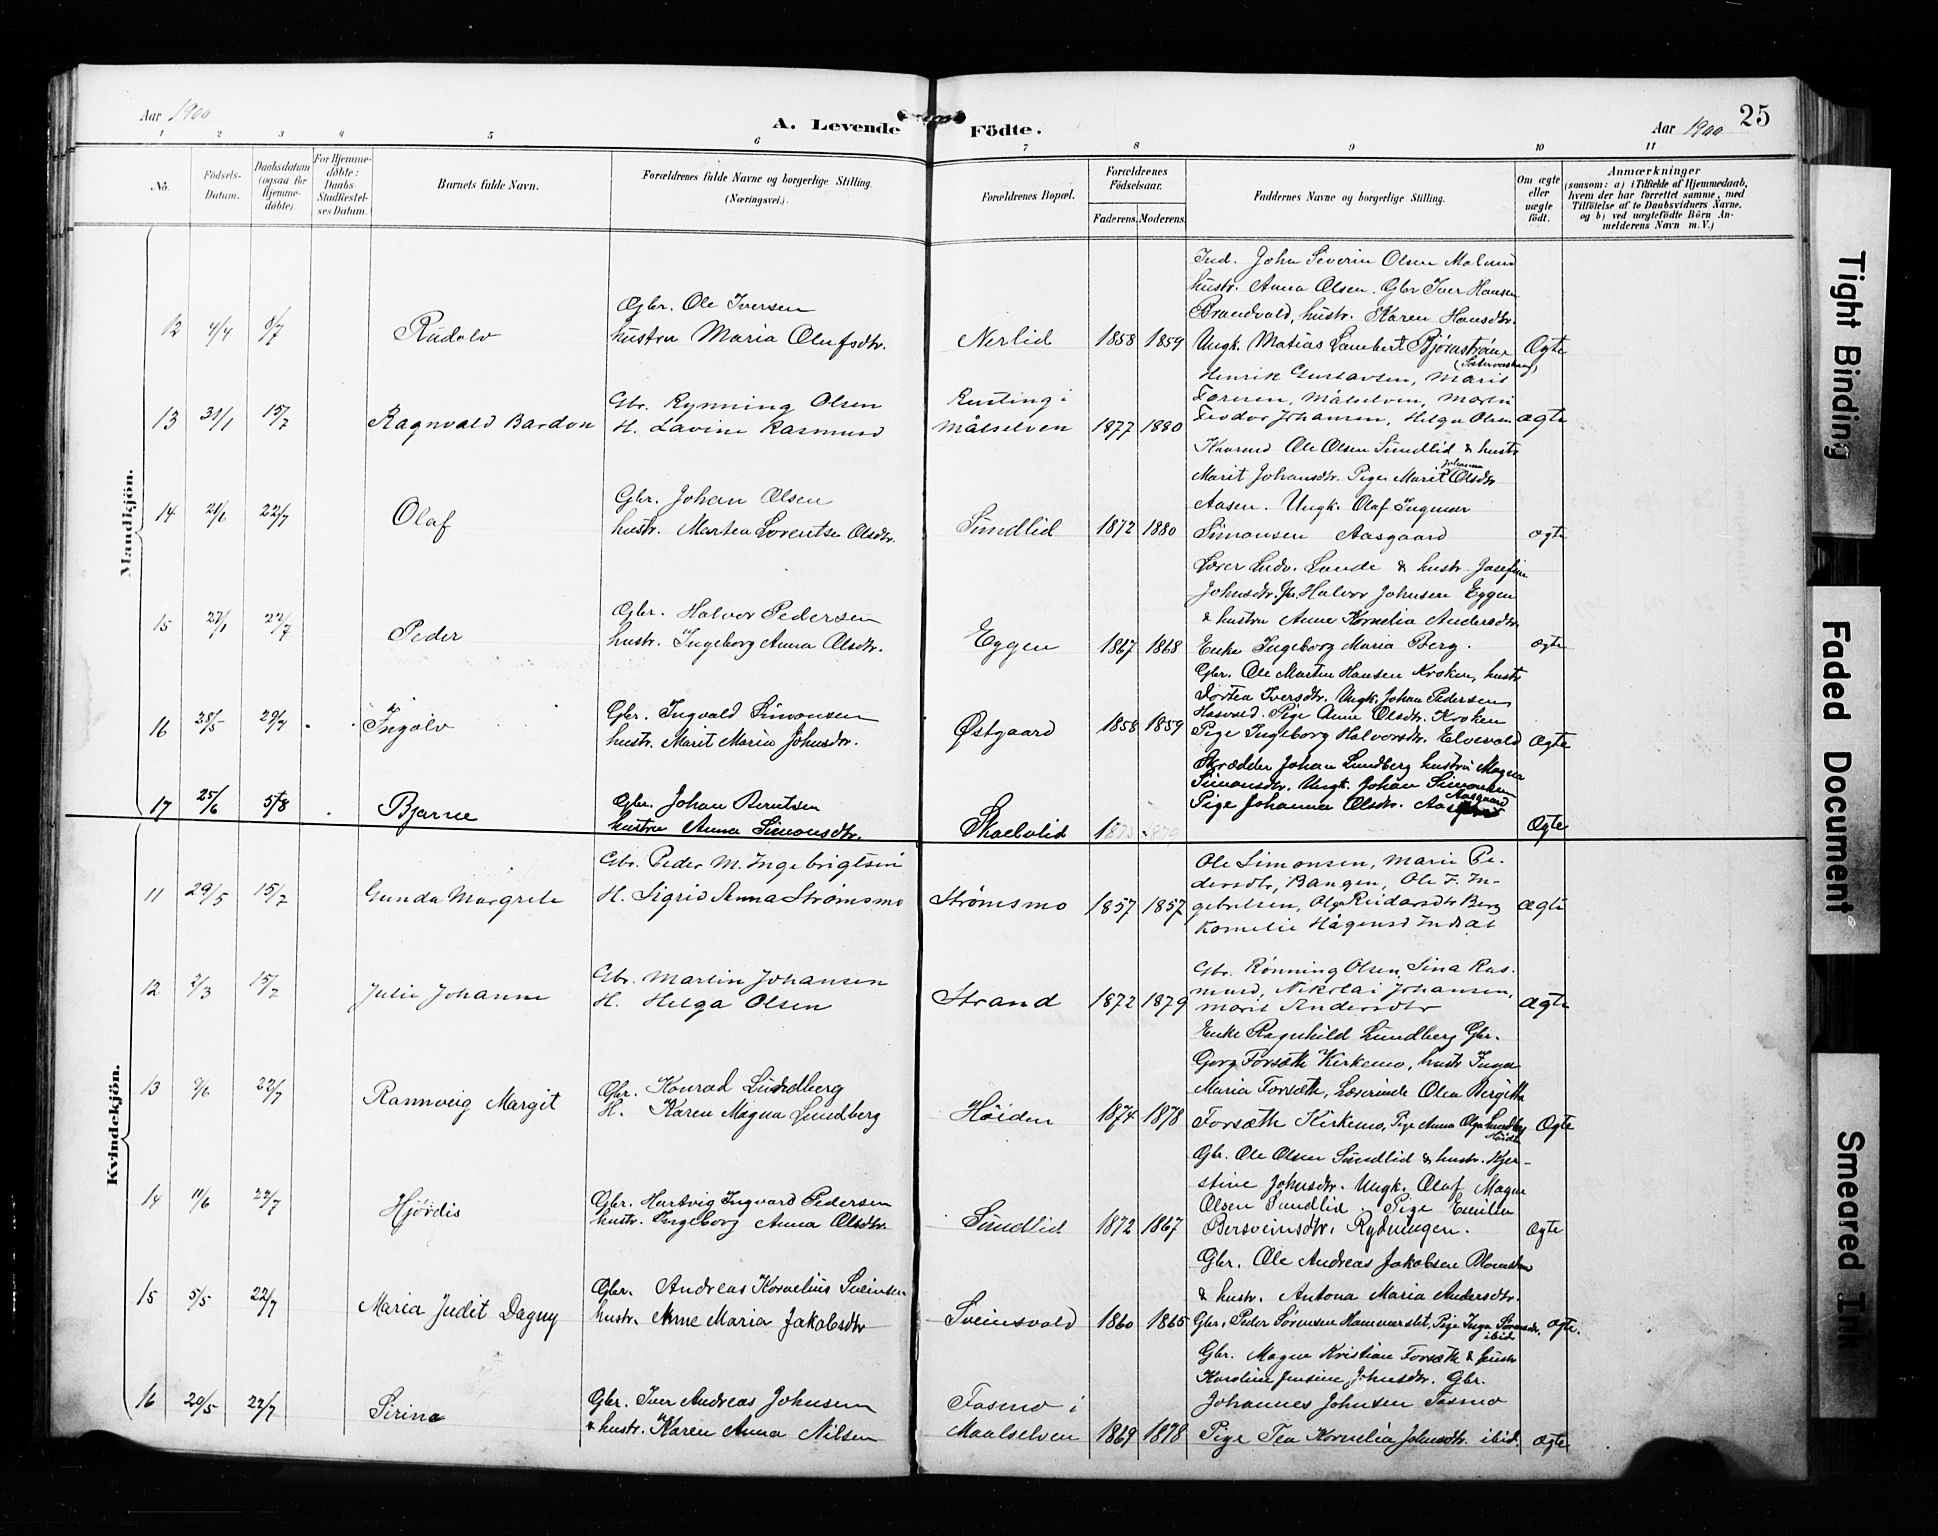 Aar 1900
A. Levende Födte.
Aar 1900 25
1 2 3 4 5 6 7 8 9 10 11
No.
Födsels-Datum.
Daabsdatum (ogsaa for Hjemme-döbte).
For Hjemme-döbte: Daabs Stadfæstel-ses Datum.
Barnets fulde Navn.
Forældrenes fulde Navne og borgerlige Stilling.
(Næringsvei.)
Forældrenes Bopæl.
Forældrenes Födselsaar.
Faderens. Moderens.
Faddernes Navne og borgerlige Stilling.
Om ægte eller uægte födt.
Anmærkninger
(saasom: a) i Tilfælde af Hjemmedaab, hvem der har forrettet samme, med Tilföielse af to Daabsvidners Navne, og b) ved uægtefödte Börn Anmelderens Navn m. V.)
Mandkjön.
12 4/4 8/7 Rudolv
Gbr. Ole Iversen
hustru Maria Olufsdtr.
Nerlid 1858 1859
Ind. John Severin Olsen
hustr. Anna Olsen. Gbr Iver Hansen
Brandvold, hustr. Karen Hansdtr.
Ungk. Matias Lambert Bjørnstrøm
Ægte
13 31/1 15/7 Ragnvald Bardon
Gbr. Rynning Olsen
H. Lavine Rasmusd
Rusting i
Målselven 1877 1880
Henrik Gustavsen, Marit
Målselven, Martin
Teodor Johansen, Helga Olsen
ægte
14 21/6 22/7 Olaf
Gbr. Johan Olsen
hustr. Martea Lorentse Olsdtr.
Sundlid 1872 1880
Ole Olsen Sundlid & hustr
Marit Johansdtr. Pige Marit Johanna Olsdtr
Aasen. Ungk. Olaf Ingmar
Simonsen Aasgaard
ægte
15 27/1 22/7 Peder
Gbr. Halvor Pedersen
hustr. Ingeborg Anna Olsdtr.
Eggen 1867 1868
Lærer Ludv. Lunde & hustr Josefine
Johnsdtr. Gbr. Halvor Johnsen Eggen
& hustru Anne Kornelia Andersdtr.
Enke Ingeborg Maria Berg.
ægte
16 28/5 29/7 Ingolv
Gbr. Ingvald Simonsen
hustr. Marit Maria Johnsdtr.
Østgaard 1858 1859
Gbr. Ole Martin Hansen Kroken, hustr
Dortea Iversdtr. Ungk. Johan Pedersen
Pige Anne Olsdtr. Kroken
Pige Ingeborg Halvorsdtr. Elvevold
Ægte
17 25/6 5/8 Bjarne
Gbr. Johan Berntsen
hustru Anna Simonsdtr.
Skoelvlid 1873 1879
Skrædder Johan Lundberg hustru Magna
Simonsdtr. Ungk. Johan Simonsen
Aasgaard
Pige Johanna Olsdtr.
Ægte
Kvindekjön.
11 29/5 15/7 Gunda Margrete
Gbr. Peder M. Ingebrigtsen
H. Sigrid Anna Strømsmo
Strømsmo 1857 1857
Ole Simonsen, Marie Pe-
dersdtr, Bangen, Ole I. In-
gebretsen, Olga Reidarsdtr Berg
Kornelie Hågensd Indsæt
ægte
12 2/3 15/7 Julie Johanne
Gbr. Martin Johansen
H. Helga Olsen
Strand 1872 1879
Gbr. Rønning Olsen, Sina Ras-
musd, Nikolai Johansen,
Marit Andersdtr
ægte
13 9/6 22/7 Rannveig Margit
Gbr. Konrad Lundberg
H. Karen Magna Lundberg
Høiden 1874 1878
Enke Ragnhild Lundberg Gbr.
Georg Forsæth Kirkemo, hustr Inga
Maria Forsæth, Lærerinde Olea Bergitte
Forsæth Kirkemo, Pige Anna Olga Lundberg
Høiden
Ægte
14 11/6 22/7 Hjørdis
Gbr. Hartvig Ingvard Pedersen
hustr. Ingeborg Anna Olsdtr
Sundlid 1872 1867
Gbr. Ole Olsen Sundlid & hustr. Kjer-
stine Johnsdtr. Ungk. Olaf Magne
Olsen Sundlid. Pige Emilie
Bersveinsdtr. Rydningen.
Ægte
15 5/5 22/7 Maria Judit Dagny
Gbr. Andreas Kornelius Sveinsen
hustr. Anne Maria Jakobsdtr
Sveinsvold 1860 1865
Gbr. Ole Andreas Jakobsen
& hustr. Antona Maria Andersdtr.
Gbr. Peder Sørensen Hammerslet, Pige Inga Sørensdtr.
ibid
ægte.
16 20/5 22/7 Sirina
Gbr. Iver Andreas Johnsen
& hustr. Karen Anna Nilsen
Fosmo i
Maalselven 1869 1878
Gbr. Magne Kristian Forsæth & hustr
Karoline Jensine Johnsdtr. Gbr.
Johannes Johnsen Fosmo
Pige Tea Kornelia Johnsdtr. ibid.
Ægte
Tight Binding
Faded Document
Smeared Ink